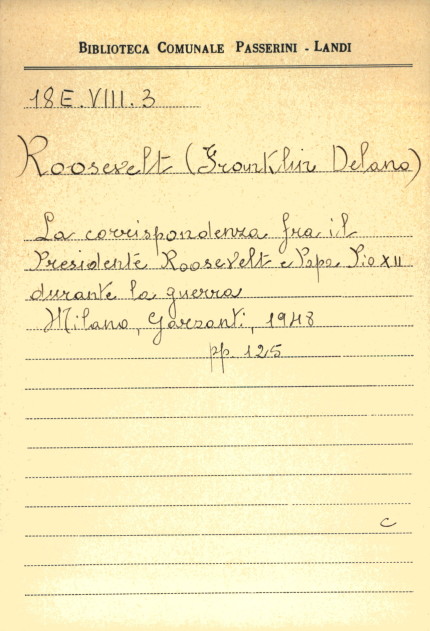 BIBLIOTECA COMUNALE PASSERINI - LANDI
18E.VIII.3
Roosevelt (Franklin Delano)
La corrispondenza fra il
Presidente Roosevelt e Papa Pio XII
durante la guerra
Milano, Garzanti, 1948
pp. 125
C